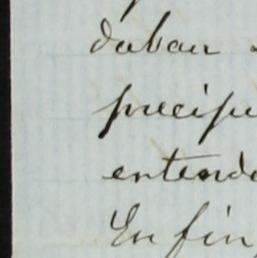 daban
precipi
entende
En fin